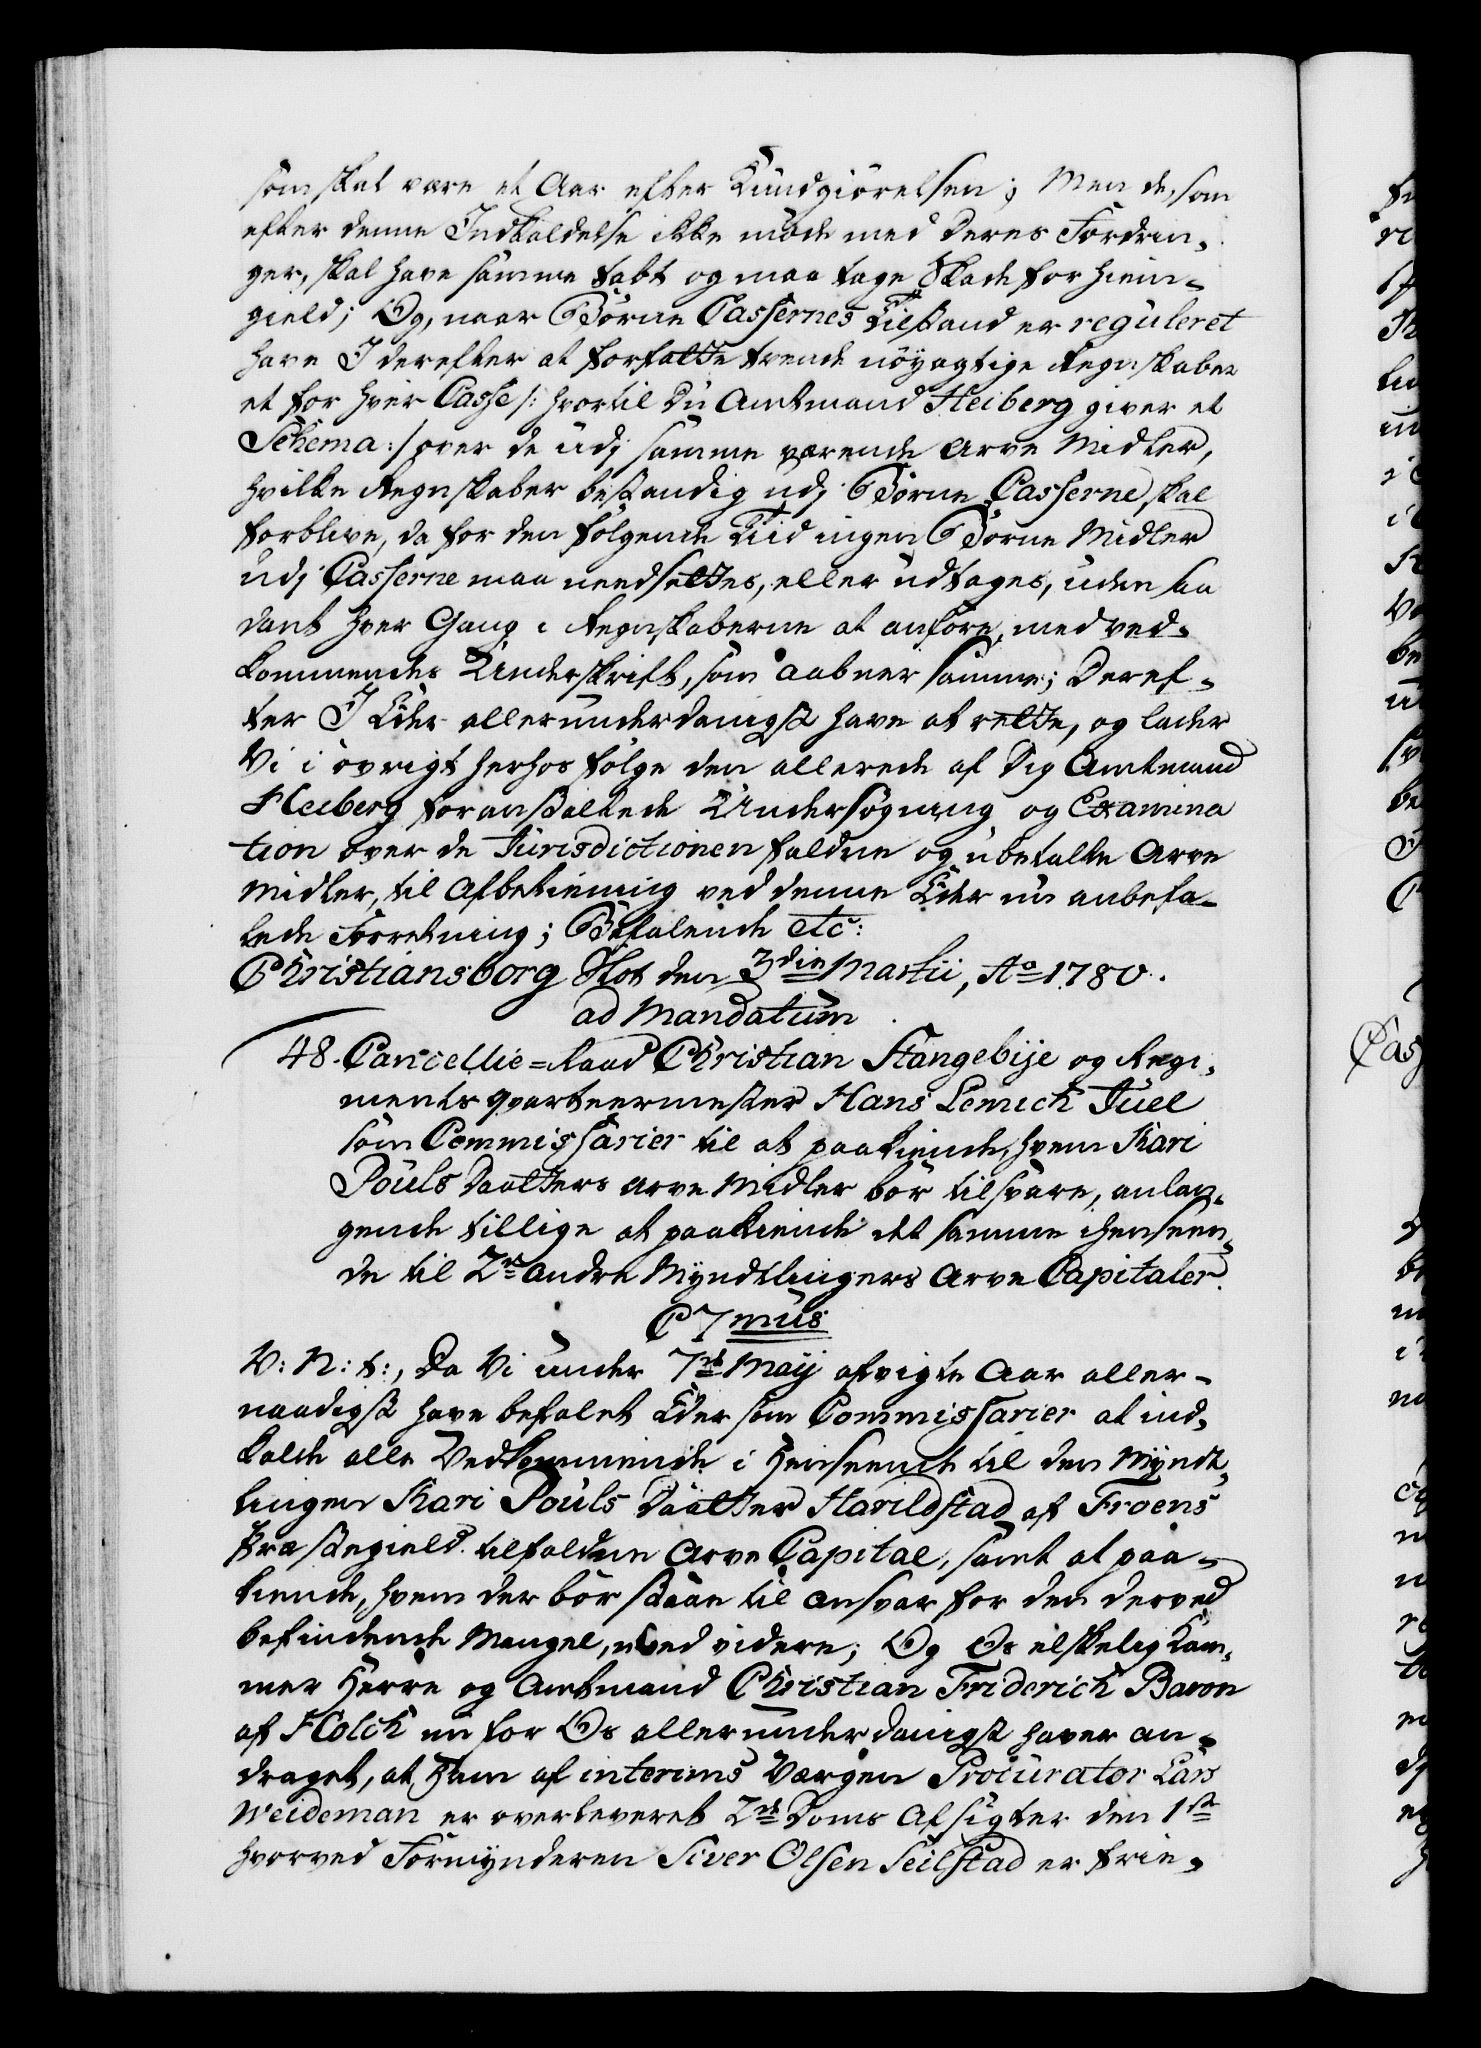 som skal være et Aar efter Kundgiørelsen; Men de, som
efter denne Indkaldelse ikke møde med Deres Fordrin-
ger, skal have samme tabt og maa tage Skade for hiem-
gield; Og, naar Børne Cassernes Tilstand er reguleret
have I derefter at forfatte trende nöyagtige Regnskaber
et for hver Casse /: hvortil Du Amtmand Heiberg giver et
Schema :/ over de udj samme værende Arve Midler,
hvilke Regnskaber bestandig udj Børne Casserne skal
forblive, da for den følgende Tiid ingen Børne Midler
udj Casserne maa nedsettes, eller udtages, uden saa
dant hver Gang i Regnskaberne at anføre, med ved-
kommendes Underskrift, som aabner samme; Deref-
ter I Eder allerunderdanigst have at rette, og lader
Vi i øvrigt herhos følge den allerede af Dig Amtmand
Heiberg foranstaltede Undersøgning og Examina
tion over de Jurisdictionen faldne og ubetalte Arve
Midler, til Afbetiening ved denne Eder nu anbefa-
lede Forretning; Befalende etc:
Christiansborg Slot den 3die Martii, Ao 1780.
ad Mandatum
48. Cancellie-Raad Christian Stangebije og Regi-
ments qvarteermester Hans Lemich Juel
som Commissarier til at paakiende, hvem Kari
Pouls Daatters Arve Midler bør tilsvare, anlan-
gende tillige at paakiende det samme i henseen-
de til 2de andre Myndtlingers Arve Capitaler.
C 7mus
V: N: t:, Da Vi under 7de Maij afvigte Aar aller-
naadigst have befalet Eder som Commissarier at ind-
kalde alle Vedkommende i Henseende til den Myndt-
lingen Kari Pouls Daatter Harildstad af Froens
Præstegield tilfaldne Arve Capital, samt at paa-
kiende, hvem der bør staae til Ansvar for den derved
befindende Mangel, med videre; Og Os elskelig Kam-
mer Herre og Amtmand Christian Friderich Baron
af Holck nu for Os allerunderdanigst haver an-
draget, at Ham af interims Værgen Procurator Lars
Weideman er overleveret 2de Doms Afsigter den 1ste
hvorved Formynderen Siver Olsen Seilstad er frie-